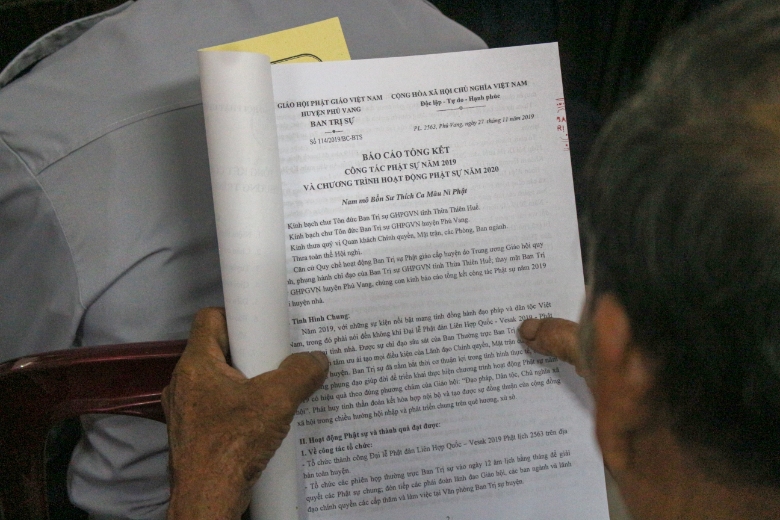 GIÁO HỘI PHẬT GIÁO VIỆT NAM
HUYỆN PHÚ VANG
BAN TRỊ SỰ
Số 114/2019/BC-BTS
CỘNG HÒA XÃ HỘI CHỦ NGHĨA VIỆT NAM
Độc lập - Tự do - Hạnh phúc
PL. 2563, Phú Vang, ngày 27 tháng 11 năm 2019
BÁO CÁO TỔNG KẾT
CÔNG TÁC PHẬT SỰ NĂM 2019
VÀ CHƯƠNG TRÌNH HOẠT ĐỘNG PHẬT SỰ NĂM 2020
Nam mô Bổn Sư Thích Ca Mâu Ni Phật
Kính bạch chư Tôn đức Ban Trị sự GHPGVN tỉnh Thừa Thiên Huế.
Kính bạch chư Tôn đức Ban Trị sự GHPGVN huyện Phú Vang.
Kính thưa quý vị Quan khách Chính quyền, Mặt trận, các Phòng, Ban ngành.
Thưa toàn thể Hội nghị.
Căn cứ Quy chế hoạt động Ban Trị sự Phật giáo cấp huyện do Trung ương Giáo hội quy
phụng hành chỉ đạo của Ban Trị sự GHPGVN tỉnh Thừa Thiên Huế, thay mặt Ban Trị
GHPGVN huyện Phú Vang, chúng con kính báo cáo tổng kết công tác Phật sự năm 2019
huyện nhà.
Tình Hình Chung:
Năm 2019, với những sự kiện nổi bật mang tính đồng hành đạo pháp và dân tộc Việt
trong đó phải nói đến không khí Đại lễ Phật đản Liên Hợp Quốc - Vesak 2019 - Phật
tỉnh nhà. Được sự chỉ đạo sâu sát của Ban Thường trực Ban Trị
tâm ưu ái tạo mọi điều kiện của Lãnh đạo Chính quyền, Mặt trận
huyện, Ban Trị sự đã nắm bắt thời cơ thuận lợi trong tình hình thực
phụng đạo giúp đời để triển khai thực hiện chương trình hoạt động Phật sự năm
có hiệu quả theo đúng phương châm của Giáo hội: "Đạo pháp, Dân tộc, Chủ nghĩa xã
Phát huy tinh thần đoàn kết hòa hợp nội bộ và tạo được sự đồng thuận của cộng đồng
xã hội trong chiều hướng hội nhập và phát triển chung trên quê hương, xứ sở.
II. Hoạt động Phật sự và thành quả đạt được:
1. Về công tác tổ chức:
- Tổ chức thành công Đại lễ Phật đản Liên Hợp Quốc - Vesak 2019 Phật lịch 2563 trên địa
bàn toàn huyện.
- Tổ chức các phiên họp thường trực Ban Trị sự vào ngày 12 âm lịch hằng tháng để giải
quyết các Phật sự chung; đón tiếp các phái đoàn lãnh đạo Giáo hội, các ban ngành và lãnh
đạo chính quyền các cấp thăm và làm việc tại Văn phòng Ban Trị sự huyện.